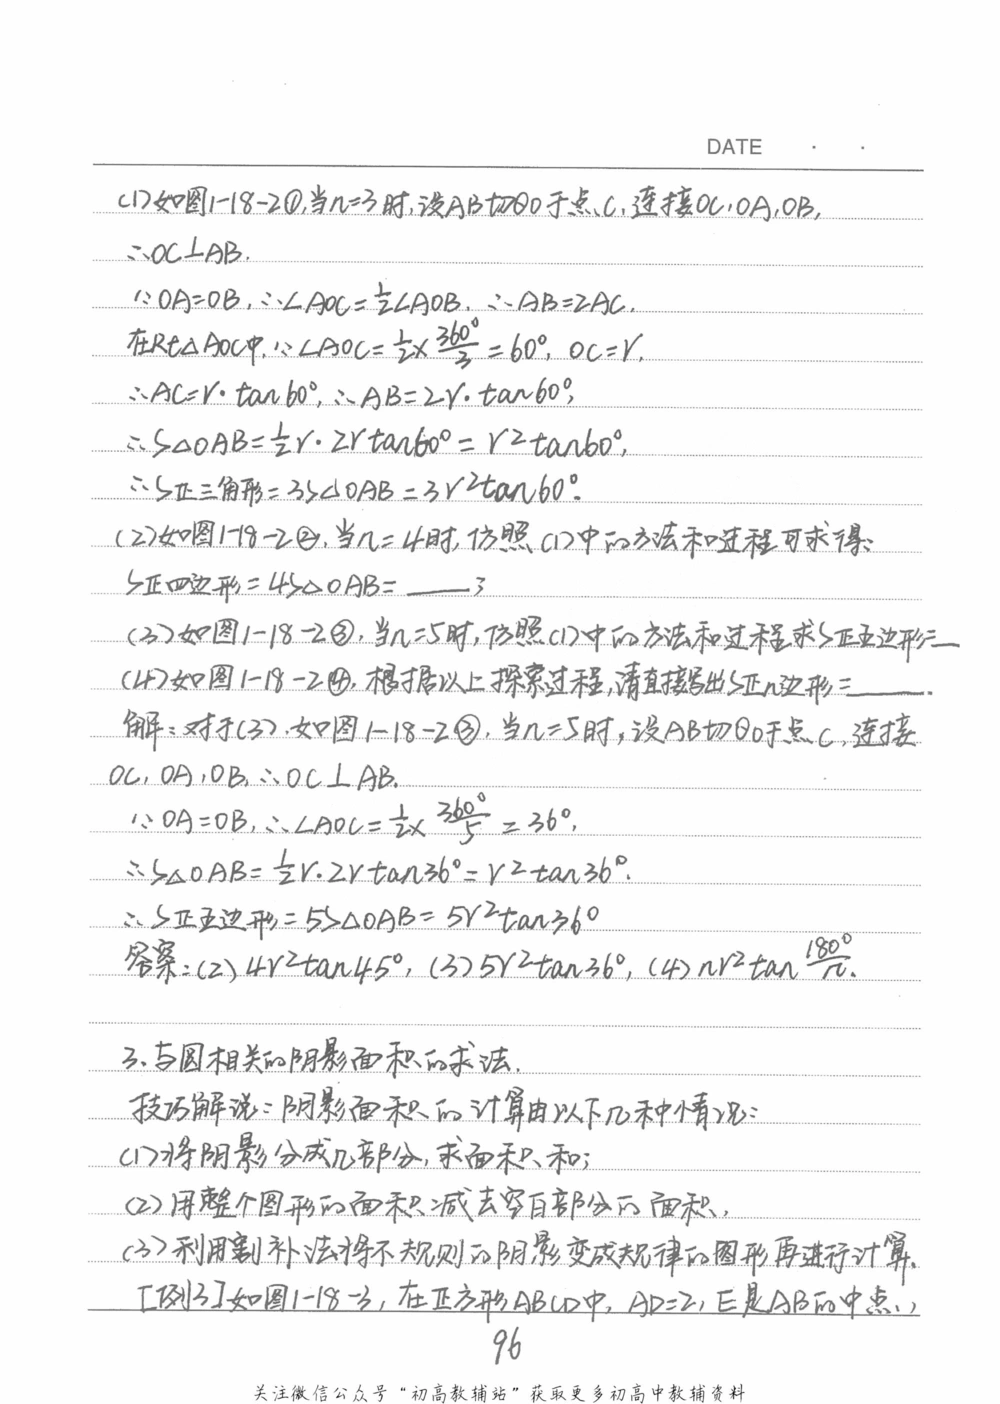 DATE · ·
(1)如图1-18-2①,当n=3时,设AB切⊙O于点C,连接OC,OA,OB,
∴OC⊥AB.
∵OA=OB,∴∠AOC=½∠AOB,∴AB=2AC.
在Rt△AOC中,∵∠AOC=½×360°/3=60°,OC=r,
∴AC=r·tan60°,∴AB=2r·tan60°,
∴S△OAB=½r·2rtan60°=r²tan60°,
∴S正三角形=3S△OAB=3r²tan60°.
(2)如图1-18-2②,当n=4时,仿照(1)中的方法和过程可求得:
S正四边形=4S△OAB=____;
(3)如图1-18-2③,当n=5时,仿照(1)中的方法和过程求S正五边形=__
(4)如图1-18-2④,根据以上探索过程,请直接写出S正n边形=____.
解:对于(3),如图1-18-2③,当n=5时,设AB切⊙O于点C,连接
OC,OA,OB,∴OC⊥AB.
∵OA=OB,∴∠AOC=½×360°/5=36°,
∴S△OAB=½r·2rtan36°=r²tan36°.
∴S正五边形=5S△OAB=5r²tan36°
答案:(2)4r²tan45°,(3)5r²tan36°,(4)nr²tan180°/n.
3、与圆相关的阴影面积的求法.
技巧解说:阴影面积的计算由以下几种情况:
(1)将阴影分成几部分,求面积和;
(2)用整个图形的面积减去空白部分的面积,
(3)利用割补法将不规则的阴影变成规律的图形再进行计算.
[例3]如图1-18-3,在正方形ABCD中,AD=2,E是AB的中点,
96
关注微信公众号“初高教辅站”获取更多初高中教辅资料